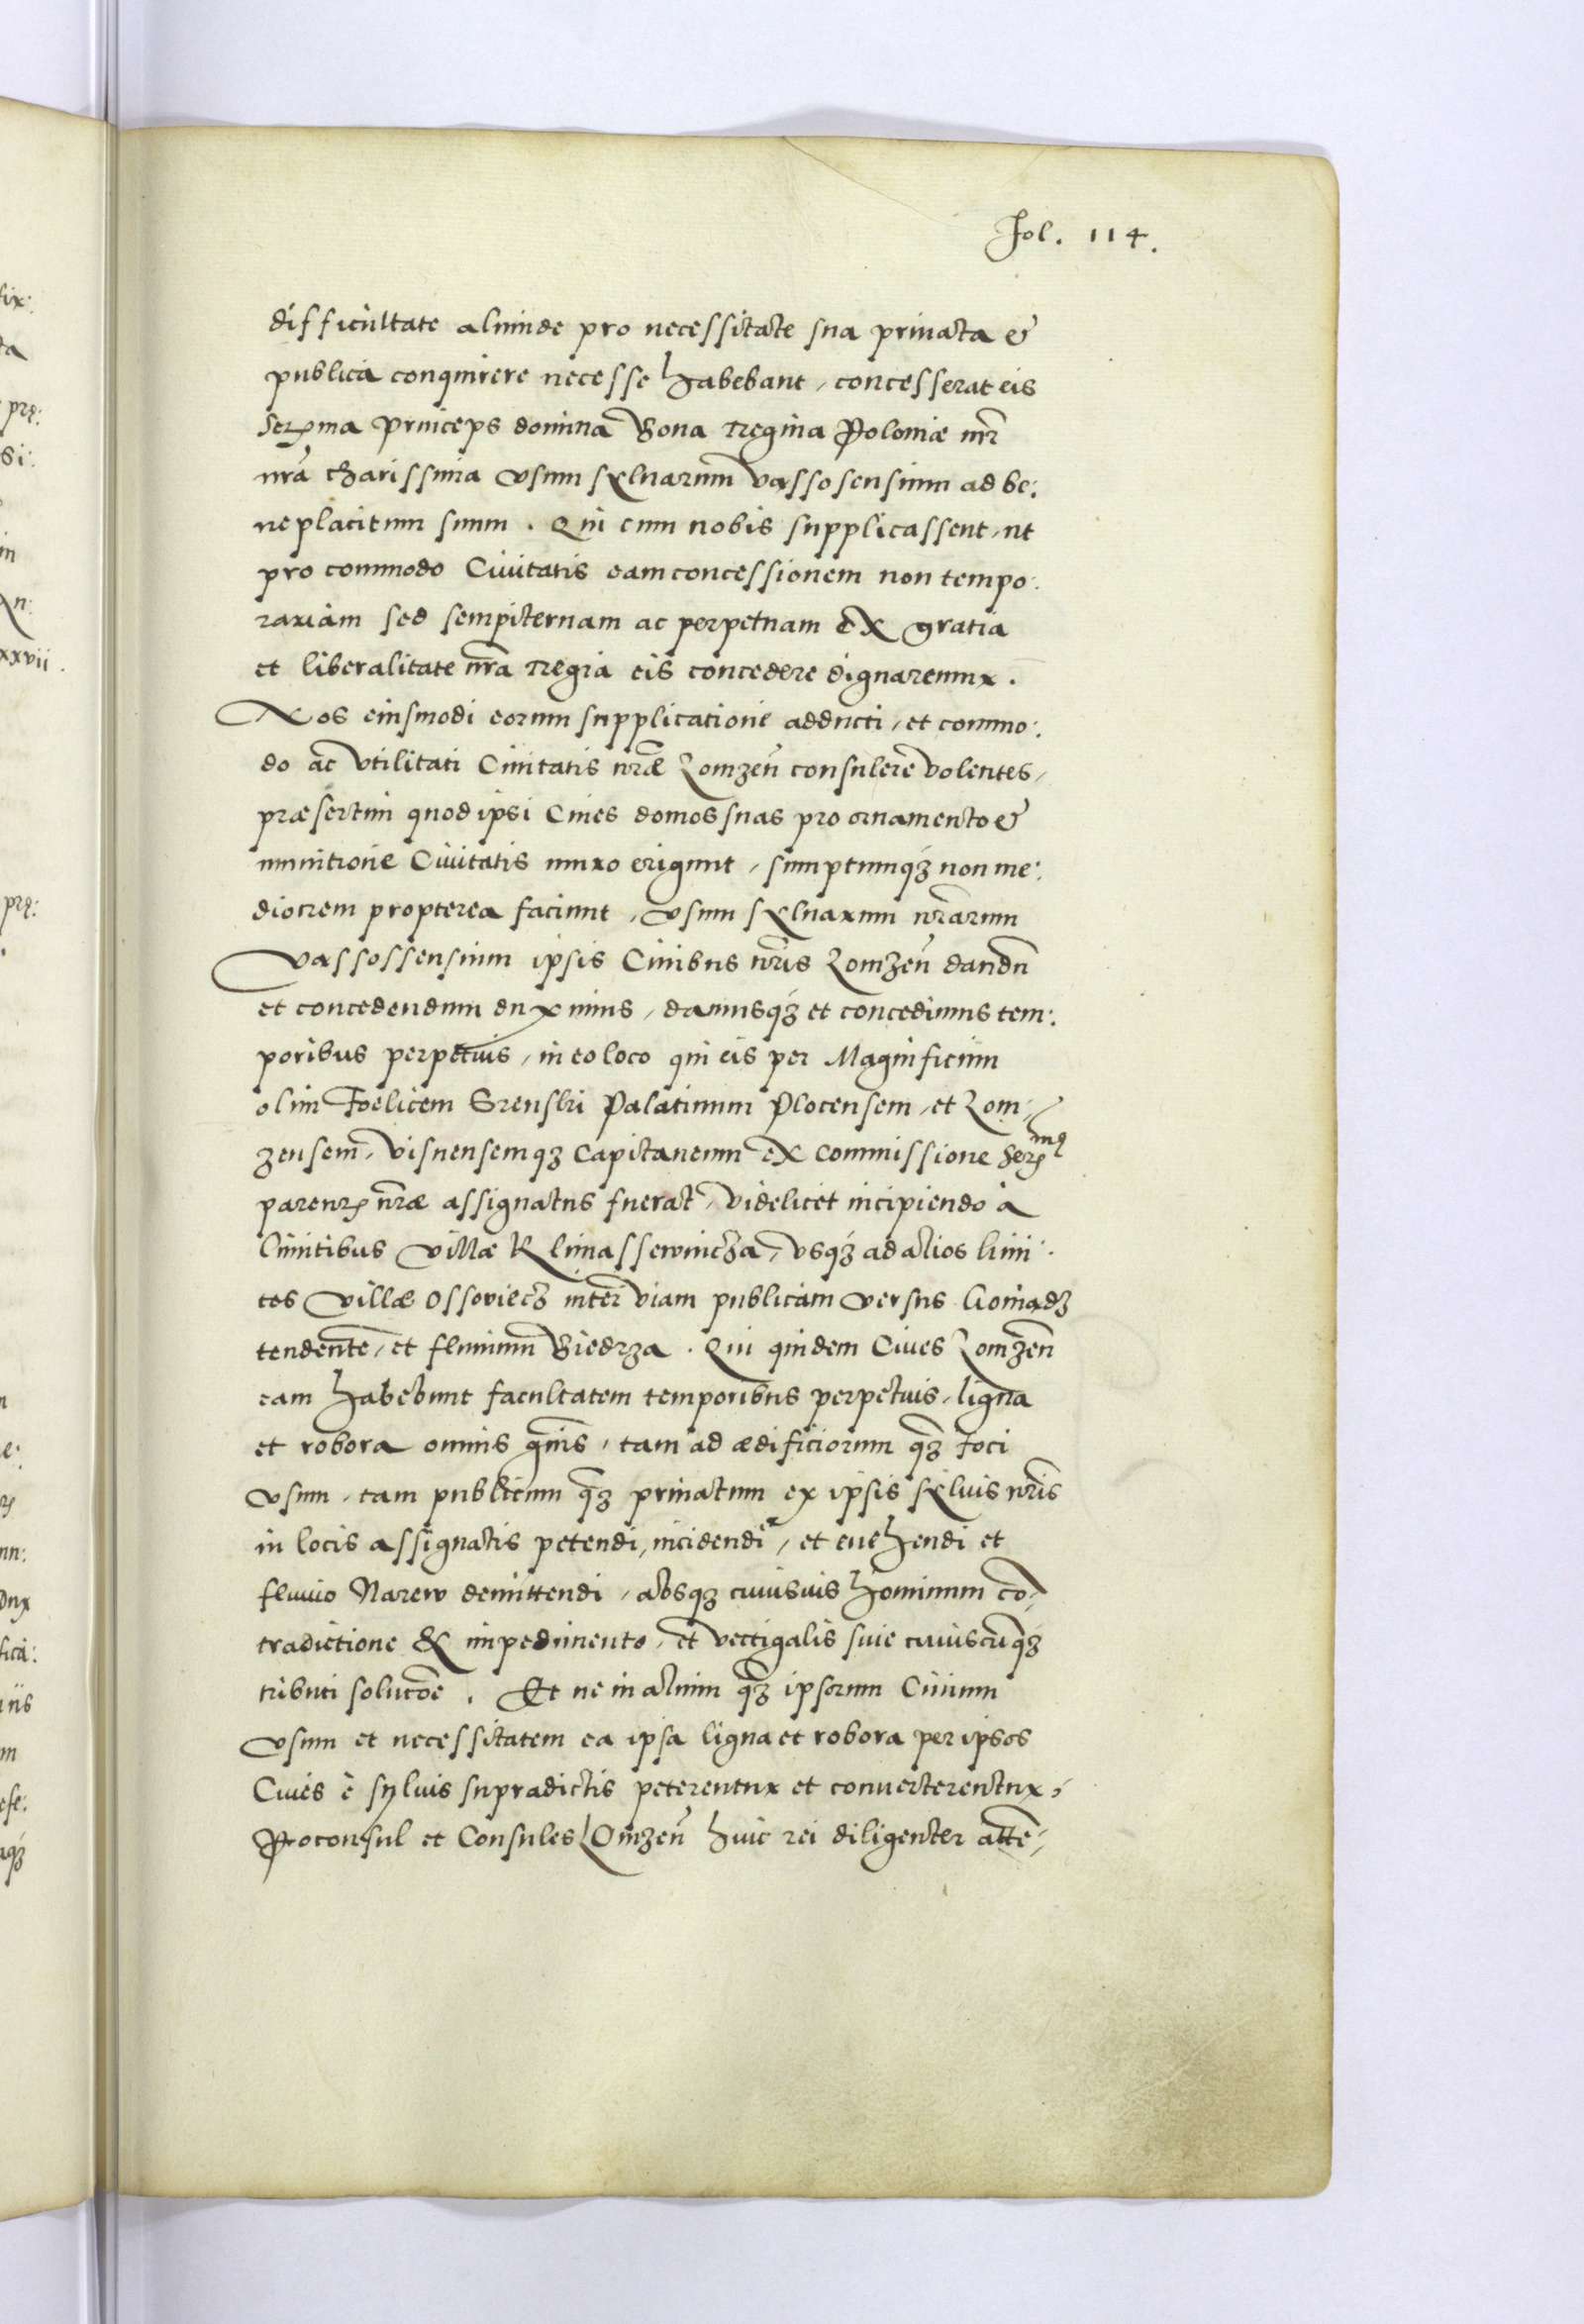 Fol. 114.
difficultate aliunde pro necessitate sua privata &
publica conquirere necesse habebant, concesserat eis
Serma princeps domina Bona Regina Poloniæ mr̃
nr̃a charissima vsum sylvarum vassosensium ad be:
neplacitum suum. Qui cum nobis supplicassent, ut
pro commodo Civitatis eam concessionem non tempo:
rariam sed sempiternam ac perpetuam ex gratia
et liberalitate nr̃a Regia eis concedere dignaremur.
Nos eiusmodi eorum supplicatione adducti, et commo:
do ac vtilitati Civitatis nr̃æ Lomzeñ consulere volentes,
præsertim quod ipsi Cives domos suas pro ornamento &
munitione Civitatis muro erigunt, sumptumqȝ non me:
diocrem propterea faciunt, vsum sylvarum nr̃arum
vassossensium ipsis Civibus nr̃is Lomzeñ dandũ
et concedendum duximus, damusqȝ et concedimus tem:
poribus perpetuis, in eo loco qui eis per Magnificum
olim Foelicem Srenski Palatinum Plocensem, et Lom:
zensem, visnensemqȝ Capitaneum ex commissione Sermę
parentꝭ nr̃æ assignatus fuerat, videlicet incipiendo à
limitibus villæ Klimassewnicza, vsqȝ ad alios limi:
tes villæ Ossoviecȝ inter viam publicam versus Goniądȝ
tendentẽ, et fluvium Biedrza. Qui quidem Cives Lomzeñ
eam habebunt facultatem temporibus perpetuis, ligna
et robora omnis gñis, tam ad ædificiorum qȝ foci
vsum, tam publicum qȝ privatum ex ipsis sylvis nr̃is
in locis assignatis petendi, incidendi, et evehendi et
fluvio Narew demittendi, absqȝ cuiusvis hominum cõ:
tradictione & impedimento, et vectigalis sive cuiuscũqȝ
tributi solucõe. Et ne in alium qȝ ipsorum Civium
vsum et necessitatem ea ipsa ligna et robora per ipsos
Cives è sylvis supradictis peterentur et converterentur,
Proconsul et Consules Lomzeñ huic rei diligenter attẽ: